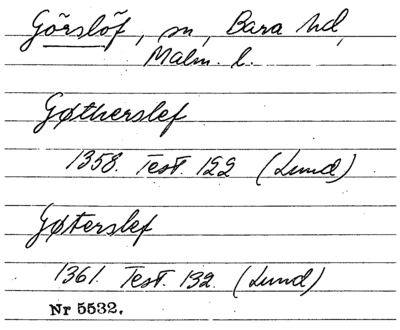 Görslöf, sn, Bara hd,
Malm. l.
Gøtherslef
1358. Test. 122 (Lund)
Gøterslef
1361. Test. 132. (Lund)
Nr 5532.